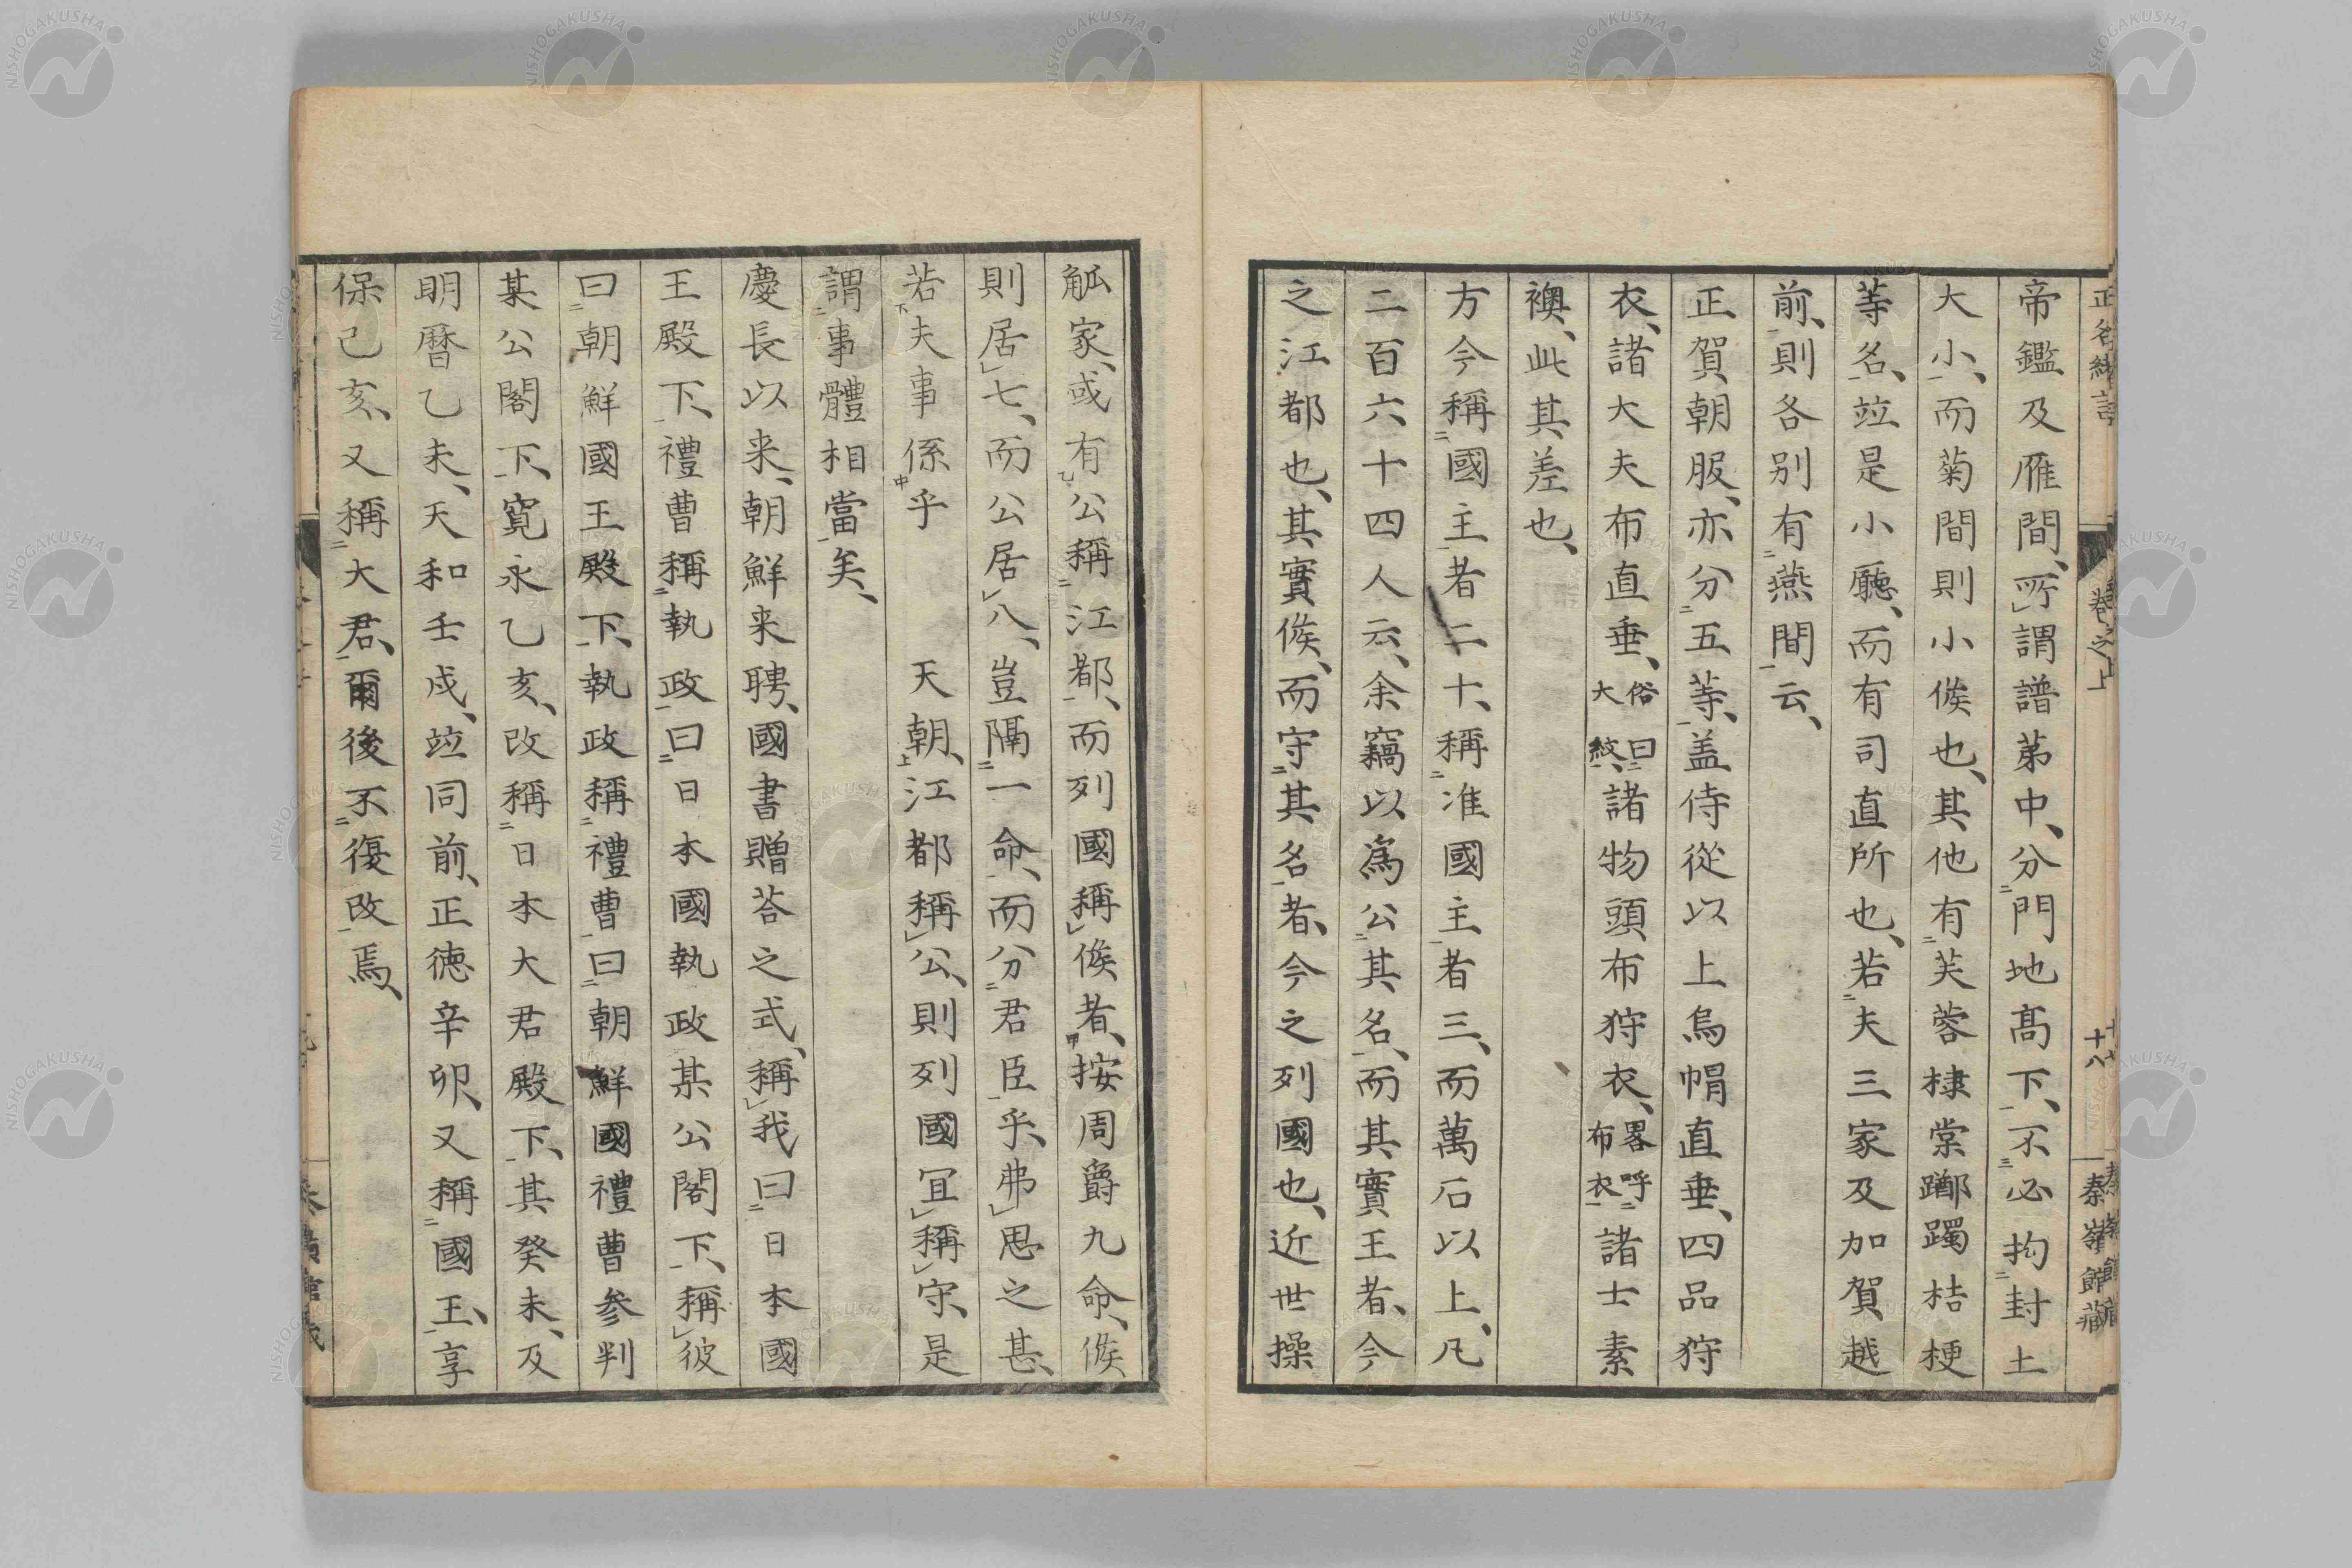 正名緒言
卷之上
十八
秦嶺館藏
帝鑑及雁間、所謂譜第中、分門地髙下、不必拘封土
大小、而菊間則小侯也、其他有芙蓉棣棠躑躅桔梗
等名、竝是小廳、而有司直所也、若夫三家及加賀越
前、則各别有燕間云、
正賀朝服、亦分五等、盖侍從以上烏帽直垂、四品狩
衣、諸大夫布直垂、俗曰大紋、諸物頭布狩衣、畧呼布衣諸士素
襖、此其差也、
方今稱國主者二十、稱准國主者三、而萬石以上、凡
二百六十四人云、余竊以為公其名、而其實王者、今
之江都也、其實侯、而守其名者、今之列國也、近世操
觚家、或有公稱江都、而列國稱侯者、按周爵九命、侯
則居七、而公居八、豈隔一命、而分君臣乎、弗思之甚、
若夫事係乎　　天朝、江都稱公、則列國宜稱守、是
謂事體相當矣、
慶長以来、朝鮮来聘、國書贈荅之式、稱我曰日本國
王殿下、禮曹稱執政曰日本國執政某公閣下、稱彼
曰朝鮮國王殿下、執政稱禮曹曰朝鮮國禮曹参判
某公閣下、寛永乙亥、改稱日本大君殿下、其癸未、及
明暦乙未、天和壬戍、竝同前、正徳辛卯、又稱國王、享
保己亥、又稱大君、爾後不復改焉、